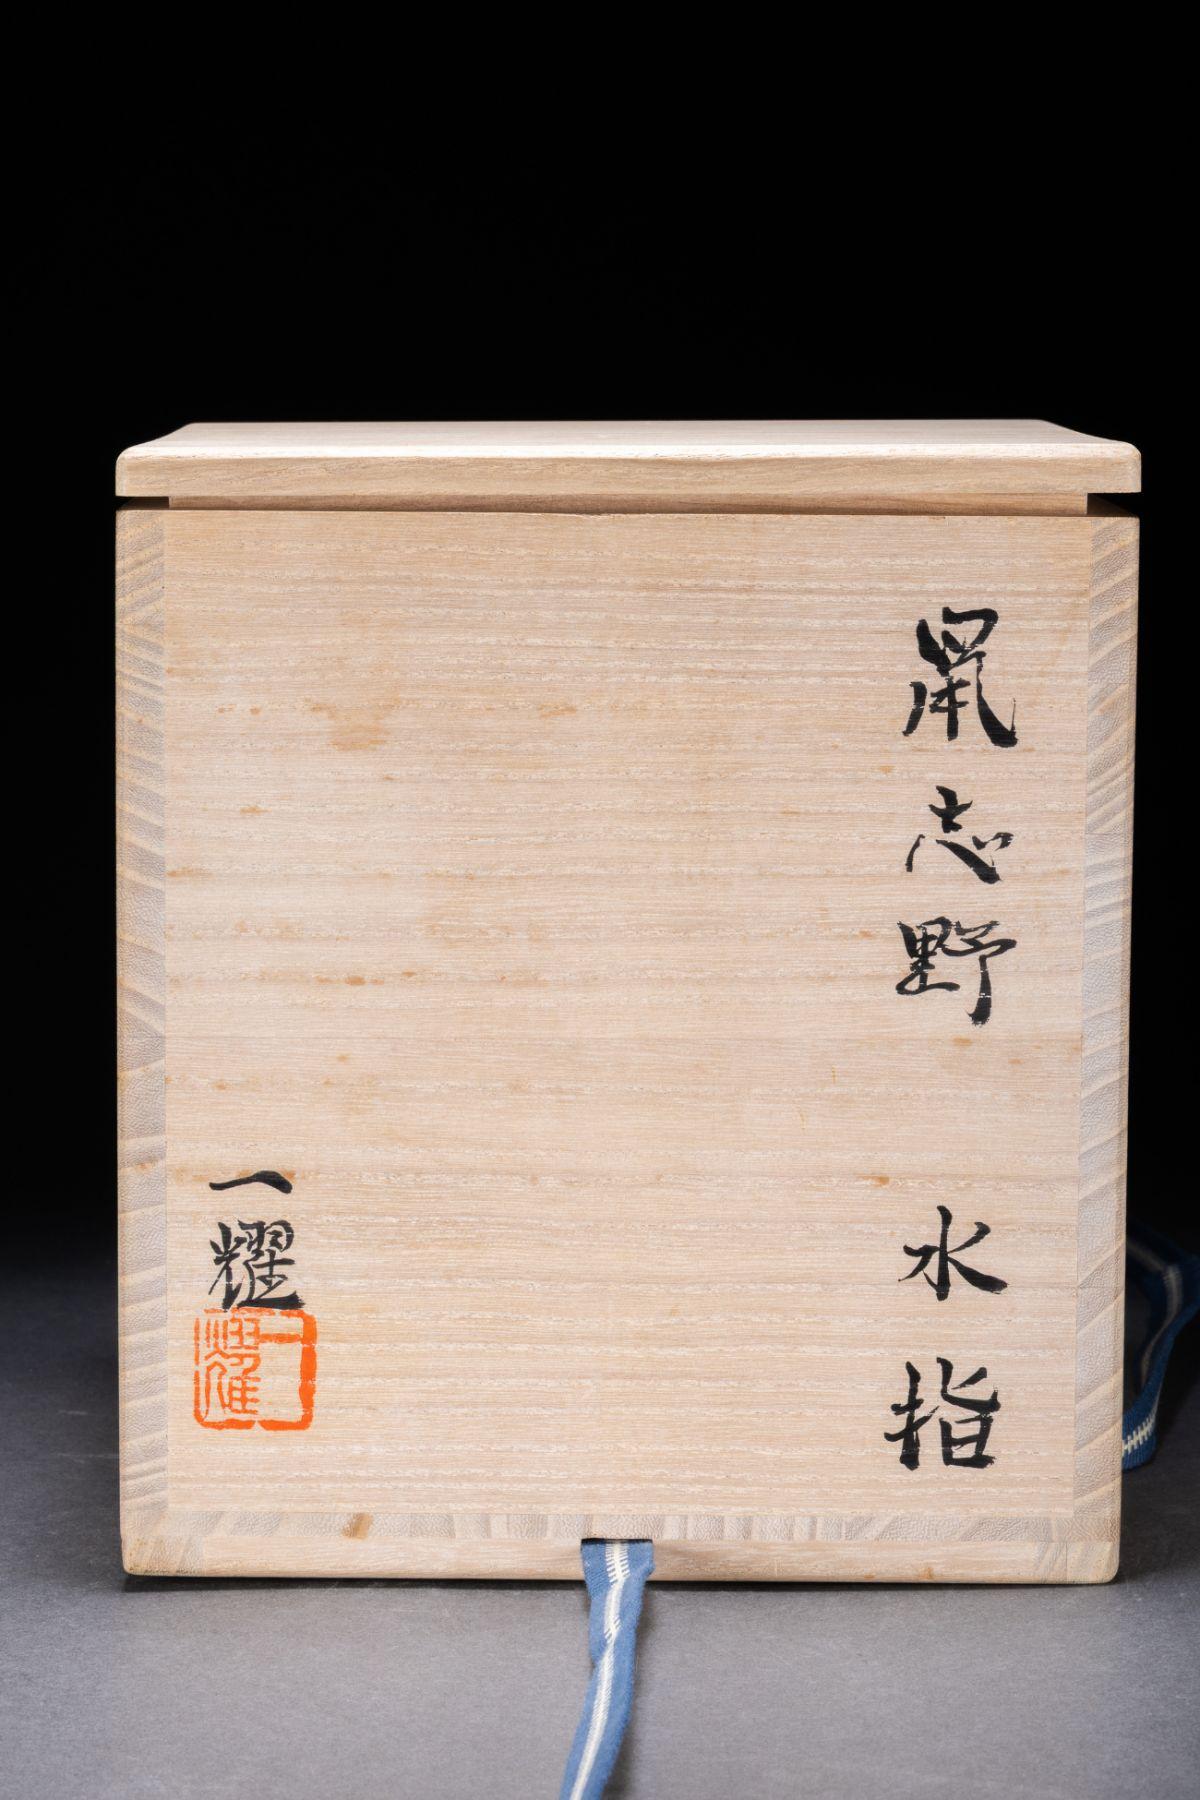 鼡志野 水指
一耀
一耀